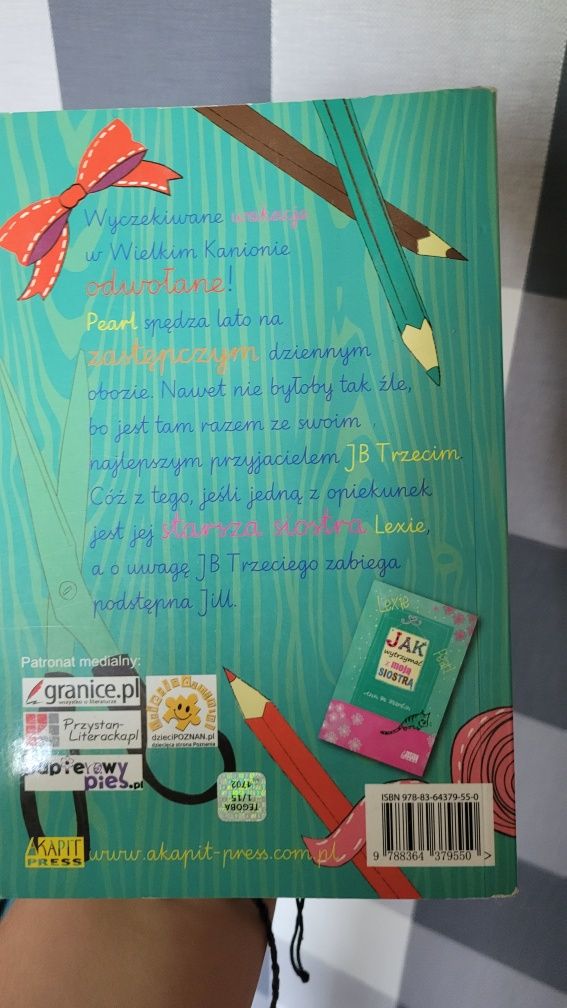 Wyczekiwane wakacje
w Wielkim Kanionie
odwołane!
Pearl spędza lato na
zastępczym dziennym
obozie. Nawet nie byłoby tak źle,
bo jest tam razem ze swoim
najlepszym przyjacielem JB Trzecim.
Cóż z tego, jeśli jedną z opiekunek
jest jej starsza siostra Lexie,
a o uwagę JB Trzeciego zabiega
podstępna Jill.
Lexie
Pearl
JAK
wytrzymać
z moją
SIOSTRĄ
Ann M. Martin
Patronat medialny:
granice.pl
wszystko o literaturze
Przystan-
Literacka.pl
papierowy
pies.pl
dzieciPOZNAN.pl
dziecięca strona Poznania
TEGOBA
1/15
4702
AKAPIT
PRESS
www.akapit-press.com.pl
ISBN 978-83-64379-55-0
9 788364 379550 >